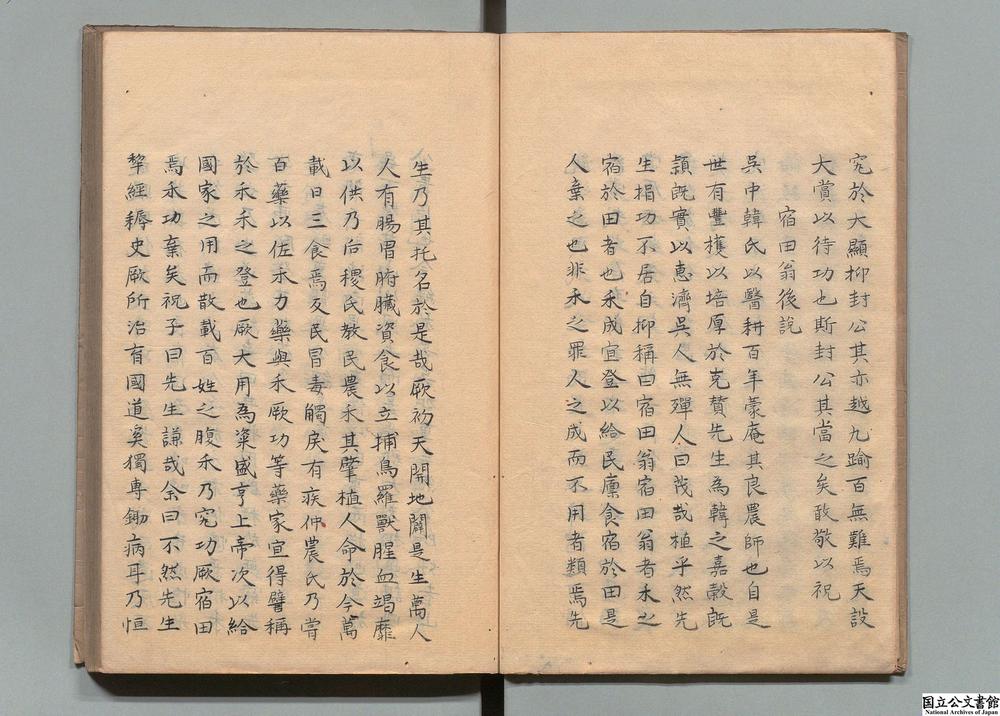 宛於大顯抑封公其亦越九踰百無難焉天設
大賞以待功也斯封公其當之矣敢敬以祝
宿田翁後説
吳中韓氏以醫耕百年蒙庵其良農師也自是
世有豐穫以培厚於克贊先生為韓之嘉穀既
穎既實以惠濟吳人無殫人曰茂哉植乎然先
生捐功不居自抑稱曰宿田翁宿田翁者禾之
宿於田者也禾成宜登以給民廩食宿於田是
人棄之也非禾之罪人之成而不用者類焉先
生乃其托名於是哉厥初天開地闢是生萬人
人有腸胃腑臟資食以立捕鳥羅獸腥血竭靡
以供乃后稷氏教民農禾其肇植人命於今萬
載日三食焉反民冒毒觸戾有疾仲農氏乃嘗
百藥以佐禾力藥與禾厥功等藥家宜得譬稱
於禾禾之登也厥大用為粢盛亨上帝次以給
國家之用而散載百姓之腹禾乃完功厥宿田
焉禾功棄矣祝子曰先生謙哉余曰不然先生
犂經耨史厥所治有國道奚獨專鋤病耳乃恒
国立公文書館
National Archives of Japan